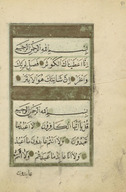 بسم الله الرحمن الرحيم
انا اعطيناك الكوثر فصل لربك
وانحر ان شانئك هو الابتر
بسم الله الرحمن الرحيم
قل يا ايها الكافرون لا اعبد ما
تعبدون ولا انتم عابدون ما
اعبد ولا انا عابد ما عبدتم ولا انتم
عابدون